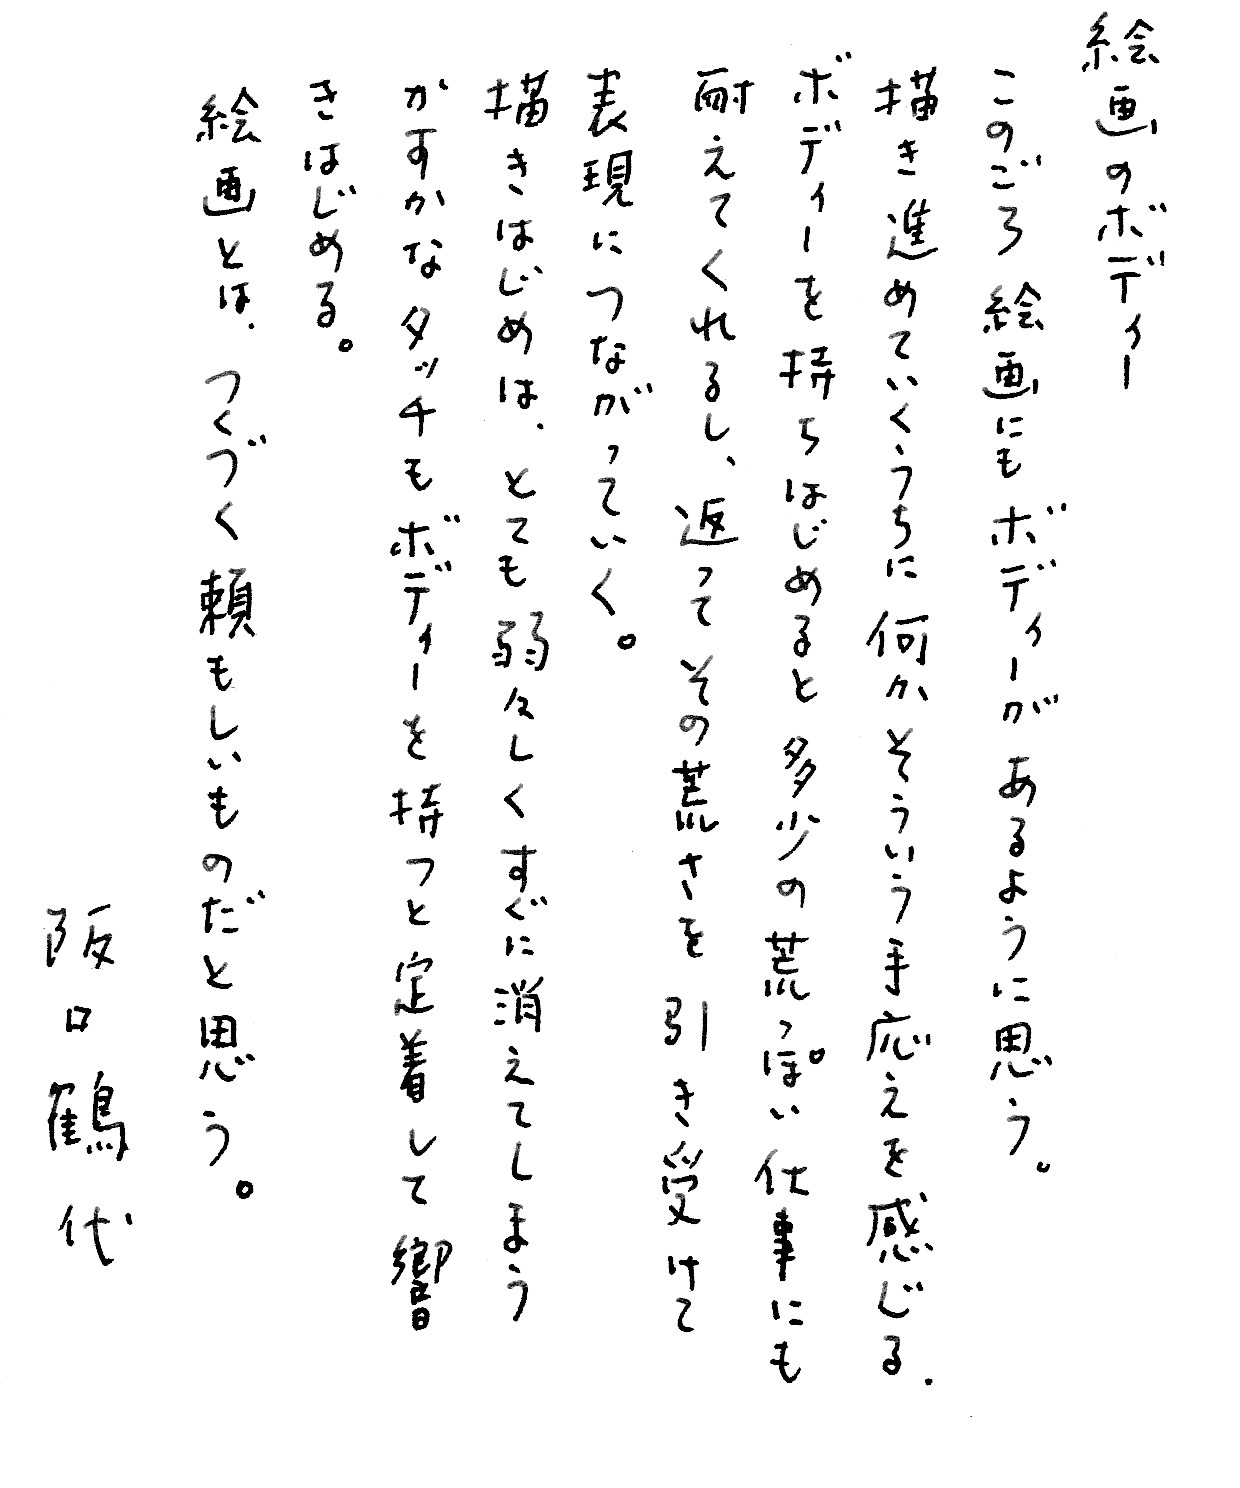 絵画のボディー
このごろ絵画にもボディーがあるように思う。
描き進めていくうちに何かそういう手応えを感じる.
ボディーを持ちはじめると多少の荒っぽい仕事にも
耐えてくれるし、返ってその荒さを引き受けて
表現につながっていく。
描きはじめは、とても弱々しくすぐに消えてしまう
かすかなタッチもボディーを持つと定着して響
きはじめる。
絵画とは、つくづく頼もしいものだと思う。
阪口鶴代